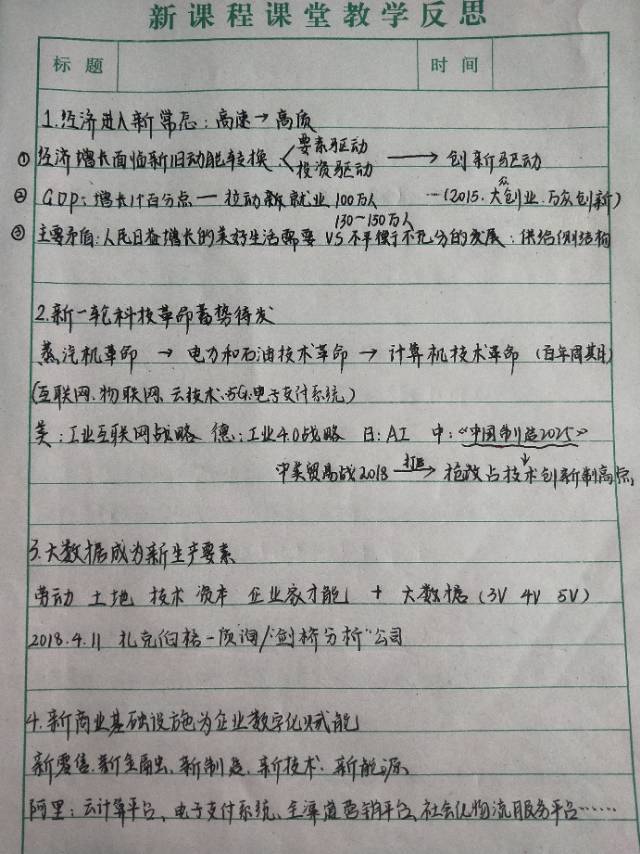 新课程课堂教学反思
标题 时间
1.经济进入新常态：高速→高质
① 经济增长面临新旧动能转换 < 要素驱动 投资驱动 → 创新驱动
② GDP：增长1个百分点 — 拉动新就业100万人 --(2015.大众创业.万众创新)
130~150万人
③ 主要矛盾：人民日益增长的美好生活需要 VS 不平衡不充分的发展：供给侧结构
2.新一轮科技革命蓄势待发
蒸汽机革命 → 电力和石油技术革命 → 计算机技术革命 (百年周期)
(互联网、物联网、云技术、5G、电子支付系统)
美：工业互联网战略 德：工业4.0战略 日：AI 中：《中国制造2025》
中美贸易战2018 打压→ 抢占技术创新制高点
3.大数据成为新生产要素
劳动 土地 技术 资本 企业家才能 + 大数据 (3V 4V 5V)
2018.4.11 扎克伯格-质询/"剑桥分析"公司
4.新商业基础设施为企业数字化赋能
新零售.新金融.新制造.新技术.新能源
阿里：云计算平台、电子支付系统、全渠道营销平台、社会化物流服务平台……